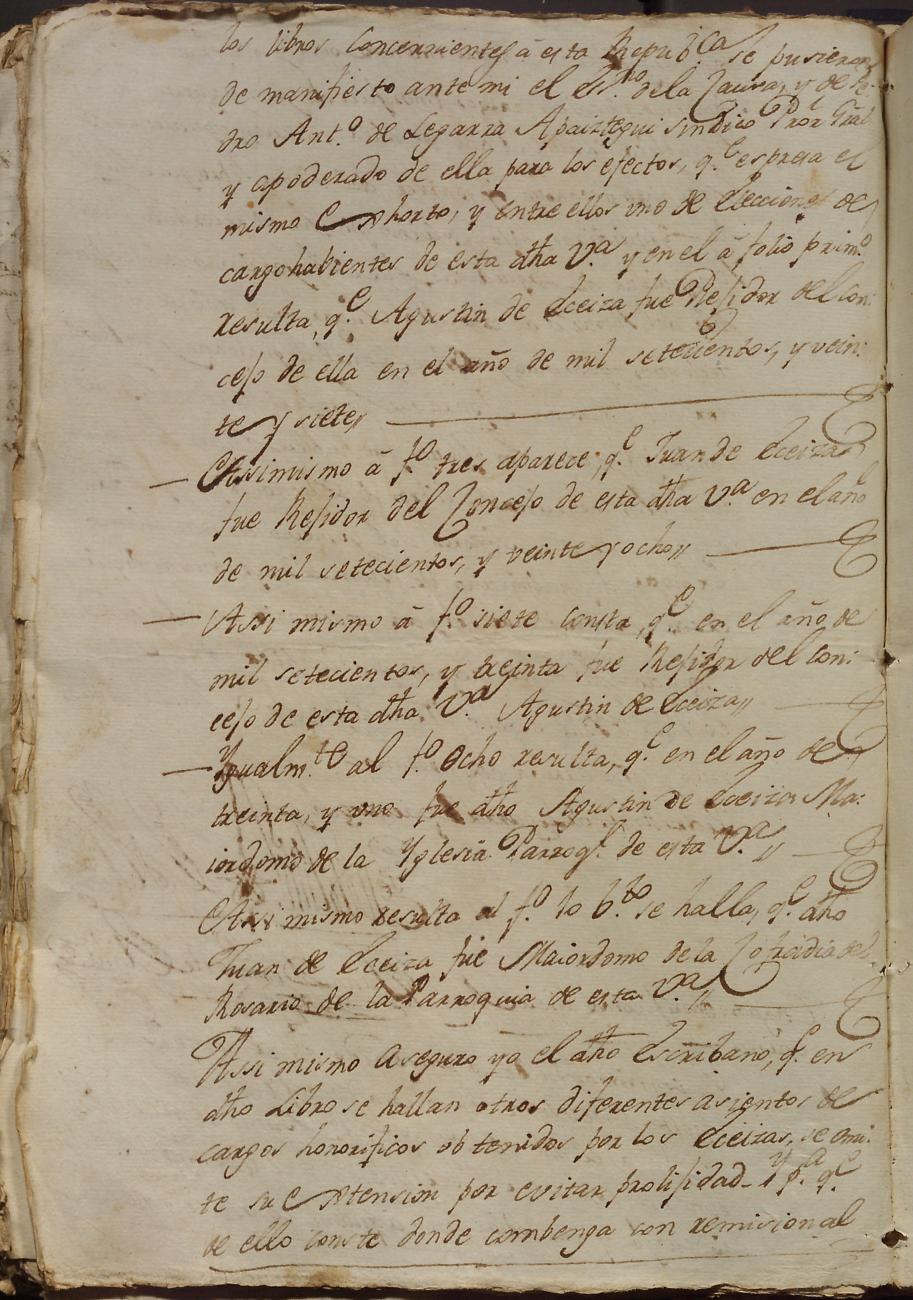 los libros concernientes â esta Repub.ca se pusieran
de manifiesto ante mi el Es.no de la Causa, y de Pe-
dro Ant.o de Legarra Apaiztegui sindico Pror Gral
y apoderado de ella para los efectos, q.e espresa el
mismo Exhorto, y entre ellos uno de Elecciones de
cargohabientes de esta dha V.a y en el â folio prim.o
resulta, q.e Agustin de Eceiza fue Regidor del Con:
cejo de ella en el año de mil setecientos, y vein:
te y siete,,
Assimismo â f.o tres aparece, q.e Juan de Eceiza
fue Regidor del Concejo de esta dha V.a en el año
de mil setecientos, y veinte y ocho,,
Assi mismo â f.o siete consta, q.e en el año de
mil setecientos, y treinta fue Regidor del Con:
cejo de esta dha V.a Agustin de Eceiza,,
Ygualm.te al f.o ocho resulta, q.e en el año de
treinta, y uno fue dho Agustin de Eceiza Ma:
iordomo de la Yglesia Parroq.l de esta V.a,,
Assi mismo resulta al f.o 10 b.to se halla, q.e dho
Juan de Eceiza fue Maiordomo de la Cofradia del
Rosario de la Parroquia de esta V.a,,
Assi mismo aseguro yo el dho Escribano, q.e en
dho Libro se hallan otros diferentes asientos de
cargos honorificos obtenidos por los Eceizas, se omi:
te su extension por evitar prolijidad y p.a q.e
de ello conste donde combenga con remision al